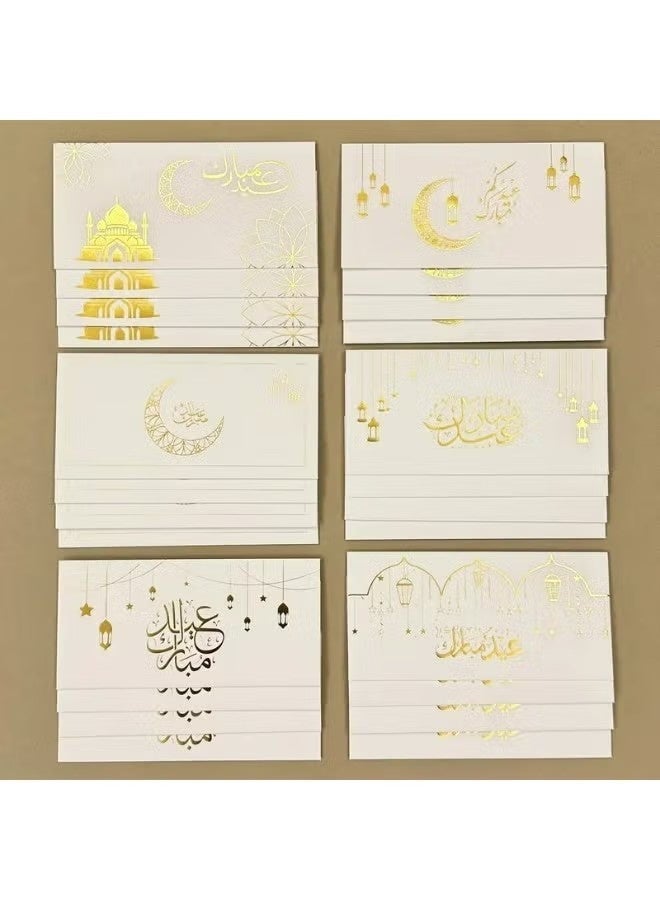 عيد مبارك
عيدكم
مبارك
عيد مبارك
عيد
مبارك
عيد مبارك
مبارك
مبارك
مبارك